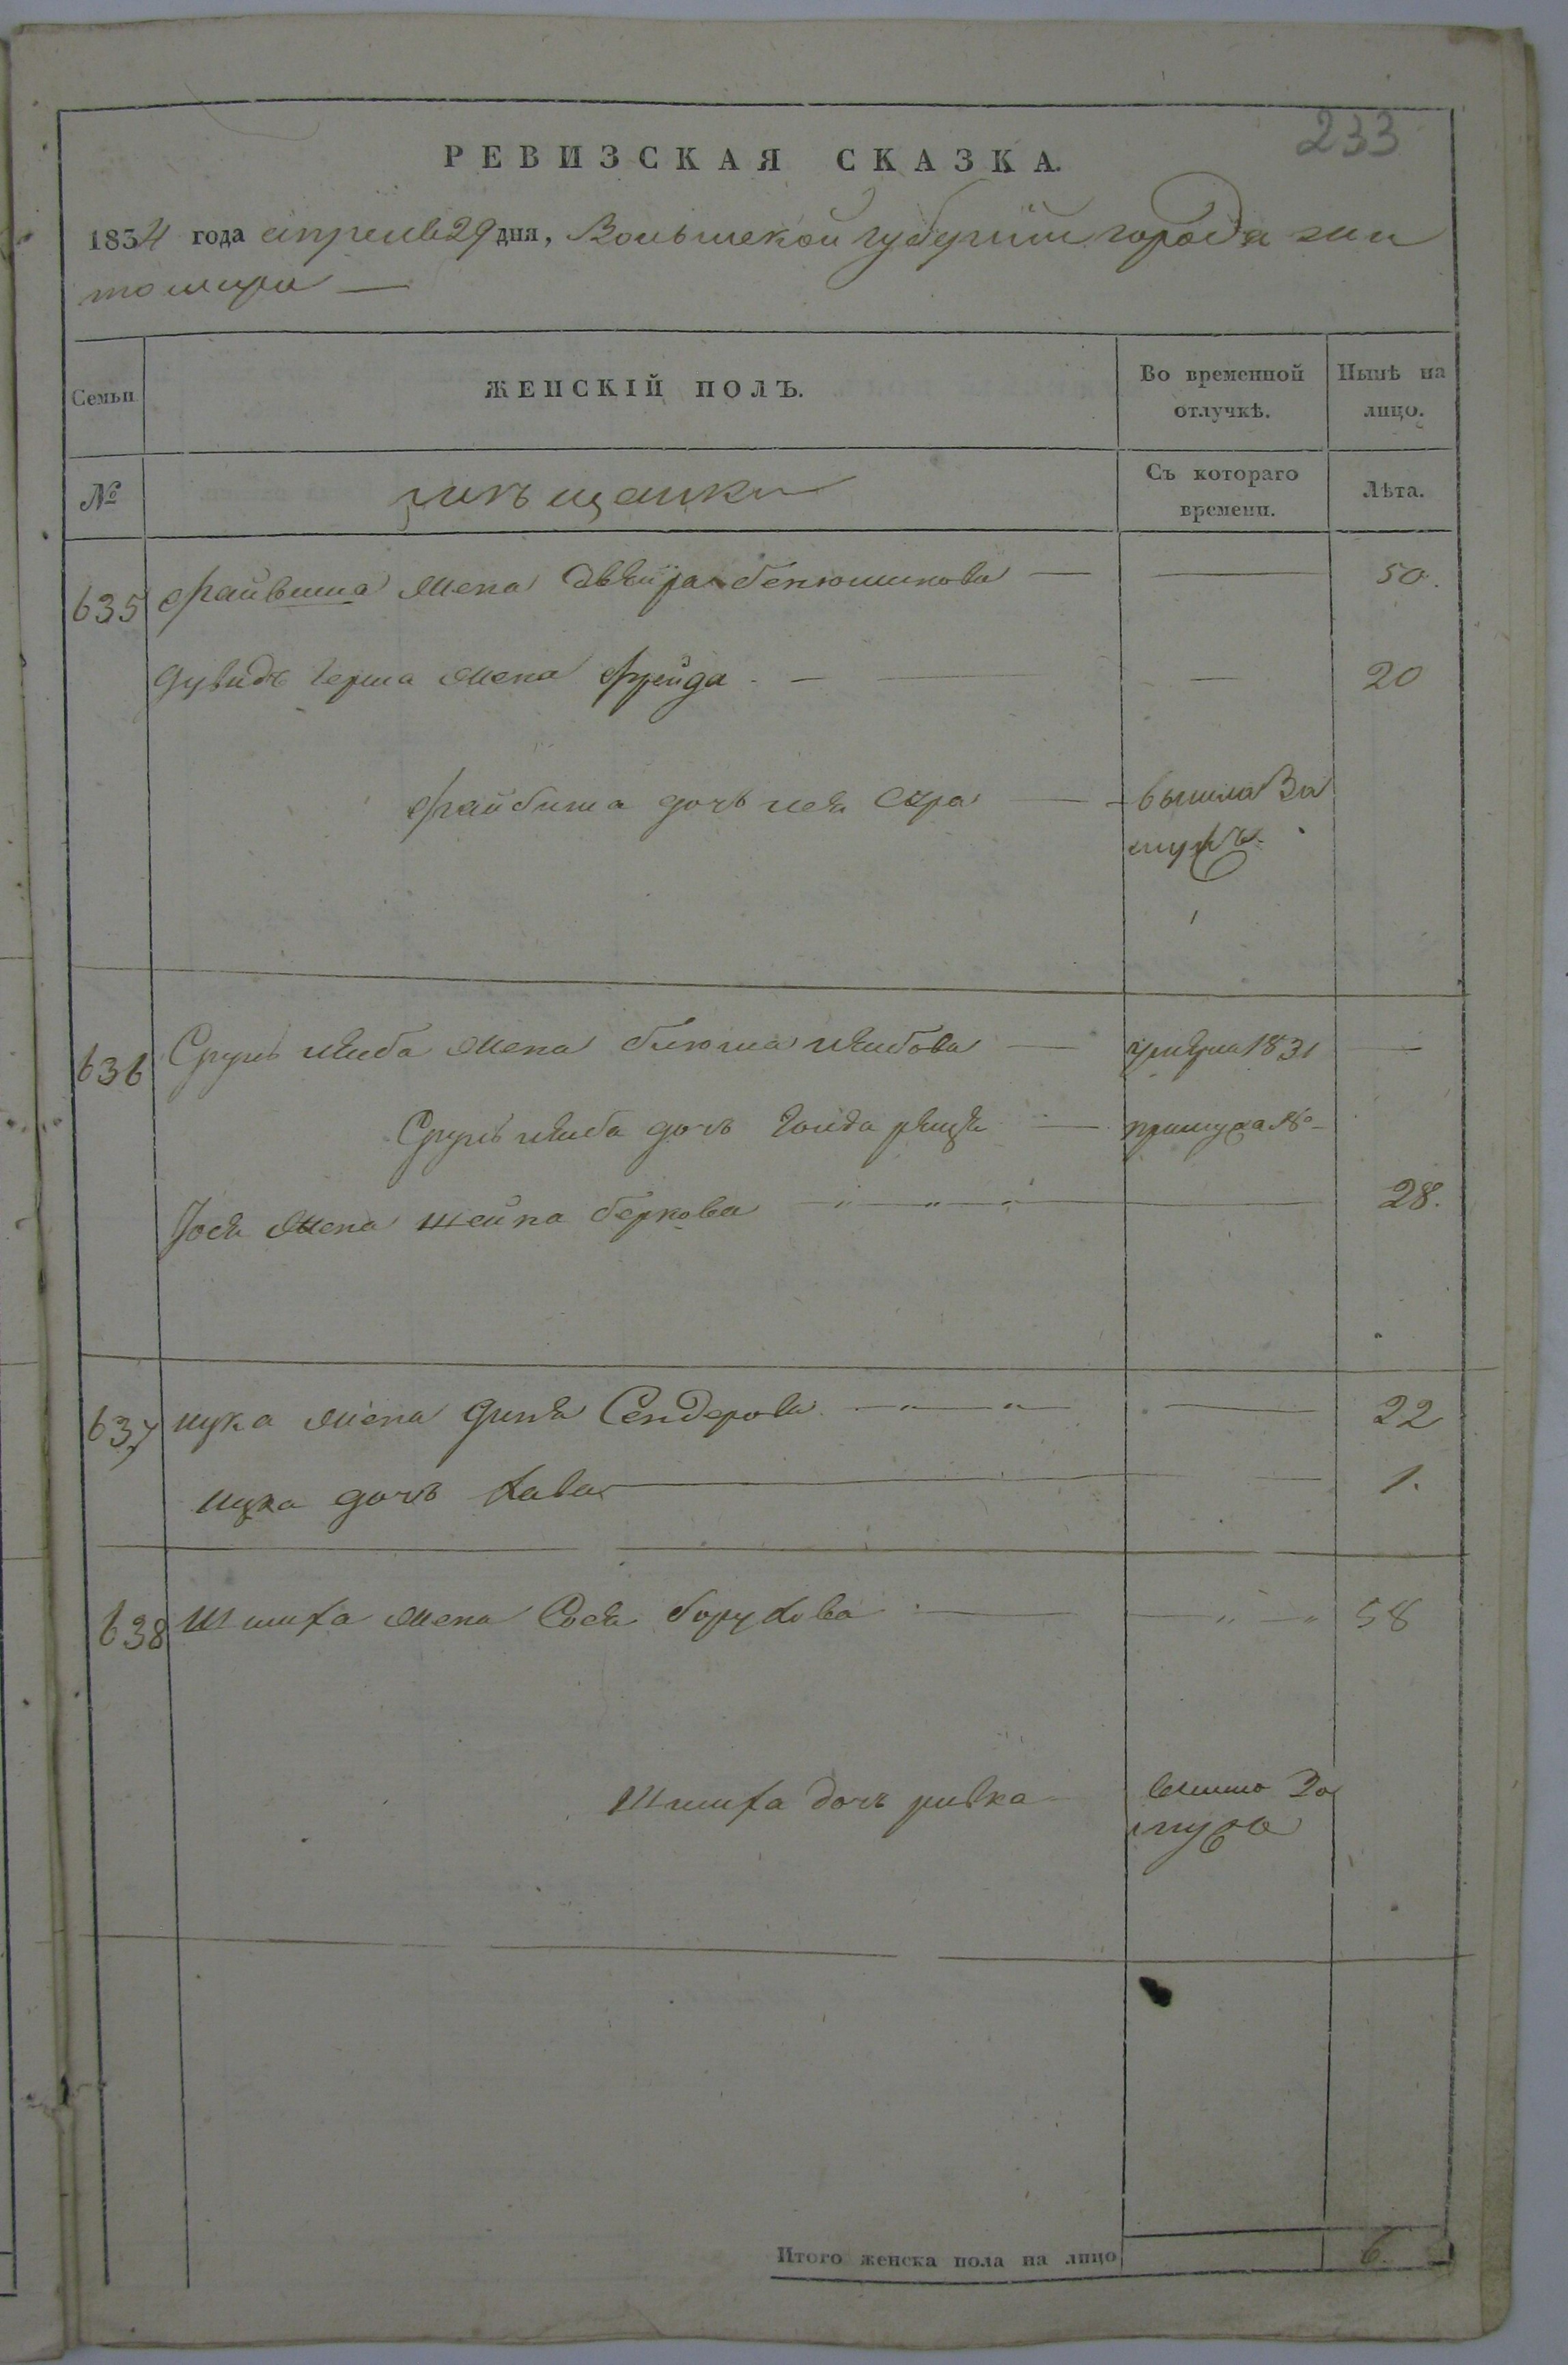 233
РЕВИЗСКАЯ СКАЗКА.
1834 года апреля 29 дня, Волынской губернии города жи
томира —
Семьи ЖЕНСКІЙ ПОЛЪ. Во временной отлучкѣ. Нынѣ на лицо.
№ мѣщанки Съ котораго времени. Лѣта.
635 Файвиша жена Двейра Бенюминова — — 50.
Дувидъ Герша жена Фрейда — — 20
Файбиша дочь Сура — вышла За
мужъ
636 Сруль лейба жена лейбова — умерла 1831 —
Сруль лейба дочь —
Іося жена шейна беркова — — 28.
637 ицка жена диня Сендерова — — 22
ицка дочь хава — — 1.
638 Шмиха жена Сося борухова — — 58
Шмиха дочь ривка вышла За
мужъ
Итого женска пола на лицо 6.